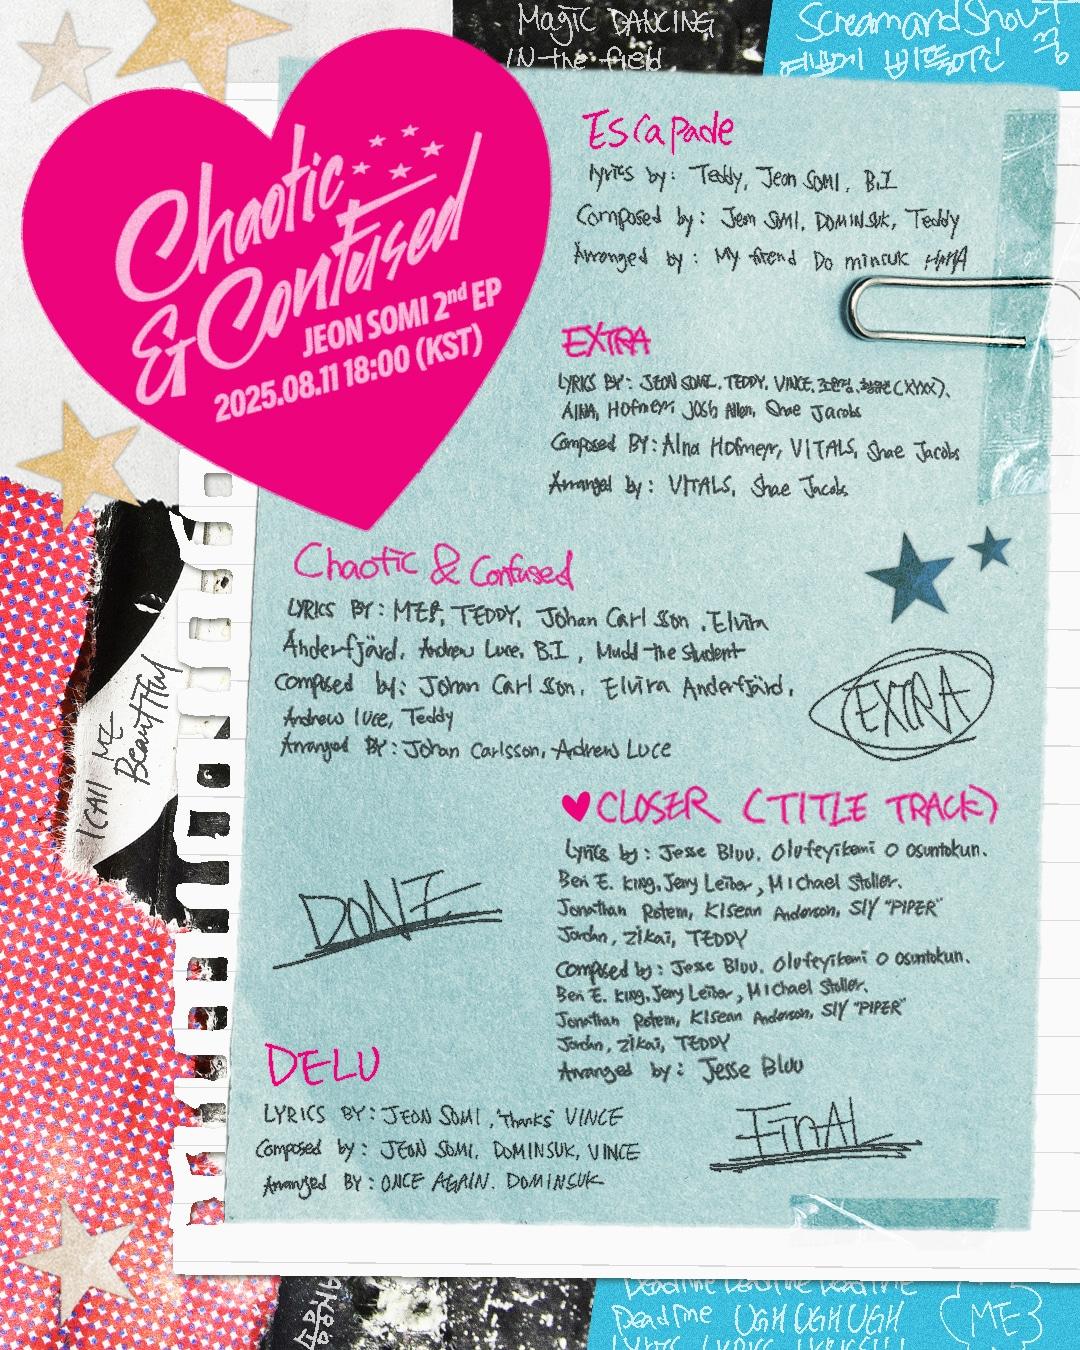 Magic DANCING
IN the field
Scream and Shout
Chaotic
& Confused
JEON SOMI 2nd EP
2025.08.11 18:00 (KST)
Escapade
lyrics by: Teddy, Jeon SOMI, B.I
Composed by: Jeon SOMI, DOMINSUK, Teddy
Arranged by: My friend Do minsuk HAHA
EXTRA
LYRICS BY: JEON SOMI, TEDDY, VINCE,
AINA, Hofmeyr, Josh Allen, Shae Jacobs
Composed BY: AIna Hofmeyr, VITALS, Shae Jacobs
Arranged by: VITALS, Shae Jacobs
Chaotic & Confused
LYRICS BY: ME, TEDDY, Johan Carl sson, Elvira
Anderfjärd, Andrew Luce, B.I, Mudd the student
Composed by: Johan Carl sson, Elvira Anderfjärd,
Andrew luce, Teddy
Arranged BY: Johan Carlsson, Andrew Luce
EXTRA
I CAll ME
Beautiful
CLOSER (TITLE TRACK)
Lyrics by: Jesse Bluu, Olufeyikemi O Osuntokun.
Ben E. king, Jerry Leiber, Michael Stoller.
Jonathan Rotem, KIsean Anderson, SIY "PIPER"
Jordan, Zikai, TEDDY
Composed by: Jesse Bluu, Olufeyikemi O Osuntokun.
Ben E. king, Jerry Leiber, Michael Stoller.
Jonathan Rotem, KIsean Anderson, SIY "PIPER"
Jordan, Zikai, TEDDY
Arranged by: Jesse Bluu
DONE
DELU
LYRICS BY: JEON SOMI, "Thanks" VINCE
Composed by: JEON SOMI, DOMINSUK, VINCE
Arranged BY: ONCE AGAIN. DOMINSUK
FinAL
Deadline Deadline Deadline
Deadline UGH UGH UGH
ME